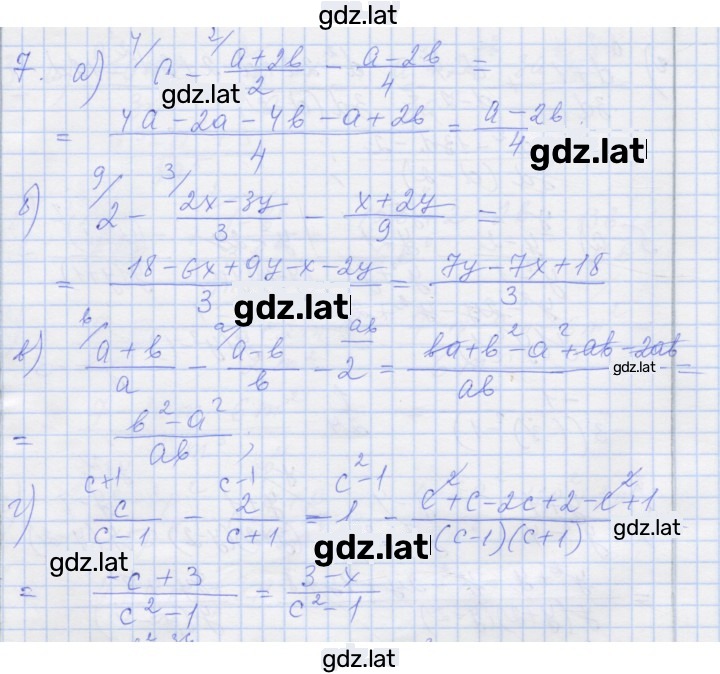 gdz.lat
7. а) ⁴/a - ²/(a+2b)/2 - (a-2b)/4 =
gdz.lat
= (4a-2a-4b-a+2b)/4 = (a-2b)/4.
gdz.lat
б) ⁹/2 - ³/(2x-3y)/3 - (x+2y)/9 =
= (18-6x+9y-x-2y)/3 = (7y-7x+18)/3
gdz.lat
в) ᵇ/(a+b)/a - ᵃ/(a-b)/b - ab/2 = (ba+b²-a²+ab-2ab)/ab =
gdz.lat
= (b²-a²)/ab;
г) c+1 c/(c-1) - c-1 2/(c+1) = c²-1 1 - (c²+c-2c+2-c²+1)/((c-1)(c+1))
gdz.lat
gdz.lat
gdz.lat
= (-c+3)/(c²-1) = (3-x)/(c²-1)
gdz.lat